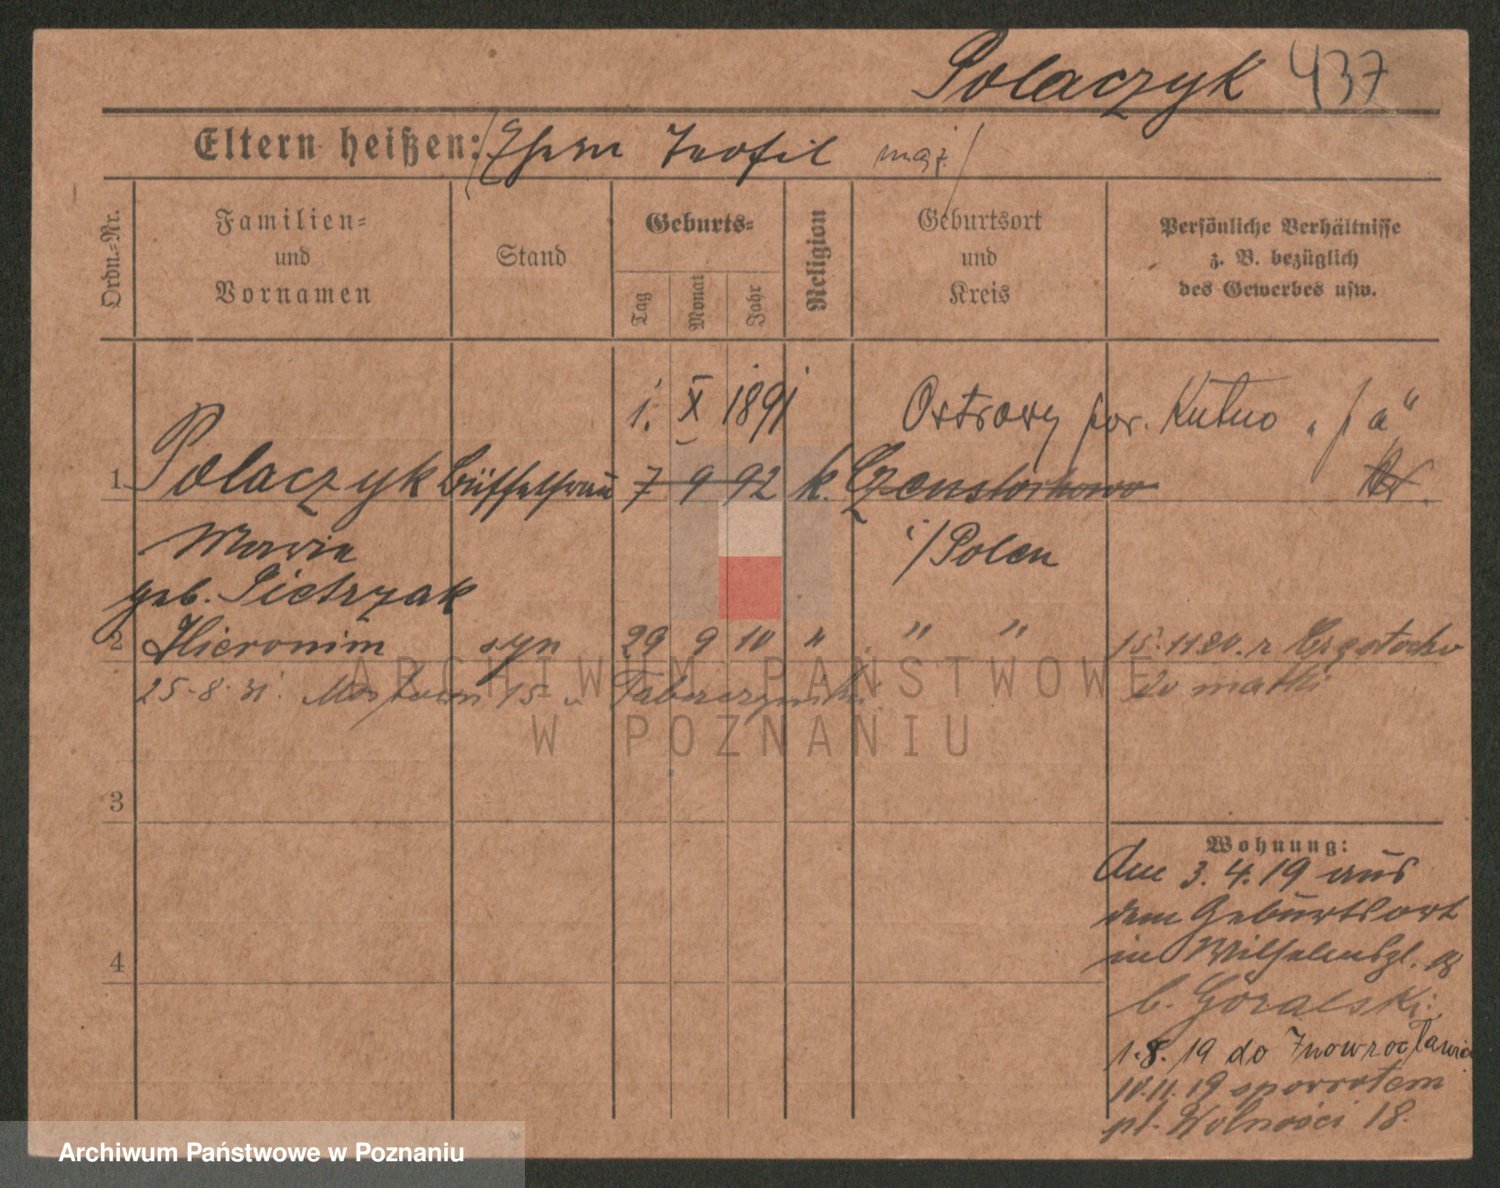 Polaczyk 437
Eltern heißen: Ehem Teofil mąż
Ordn.-Nr.
Familien-
und
Vornamen
Stand
Geburts-
Tag
Monat
Jahr
Religion
Geburtsort
und
Kreis
Persönliche Verhältnisse
z. B. bezüglich
des Gewerbes usw.
1. X 1891 Ostrowy pow. Kutno „ a"
1 Polaczyk Büffetfrau 7 9 92 k. Czenstochowo
Marie i/Polen
geb. Pietrzak
2 Hieronim syn 29 9 10 " " " 15.11.20. z
25.8.31. 15 do matki
3
4
Wohnung:
Am 3.4.19 aus
dem Geburtsort
in Wilhelmspl. 18
b. Góralski
1.8.19 do Inowrocławia
10.11.19 spowrotem
pl. Wolności 18.
ARCHIWUM PAŃSTWOWE
W POZNANIU
Archiwum Państwowe w Poznaniu